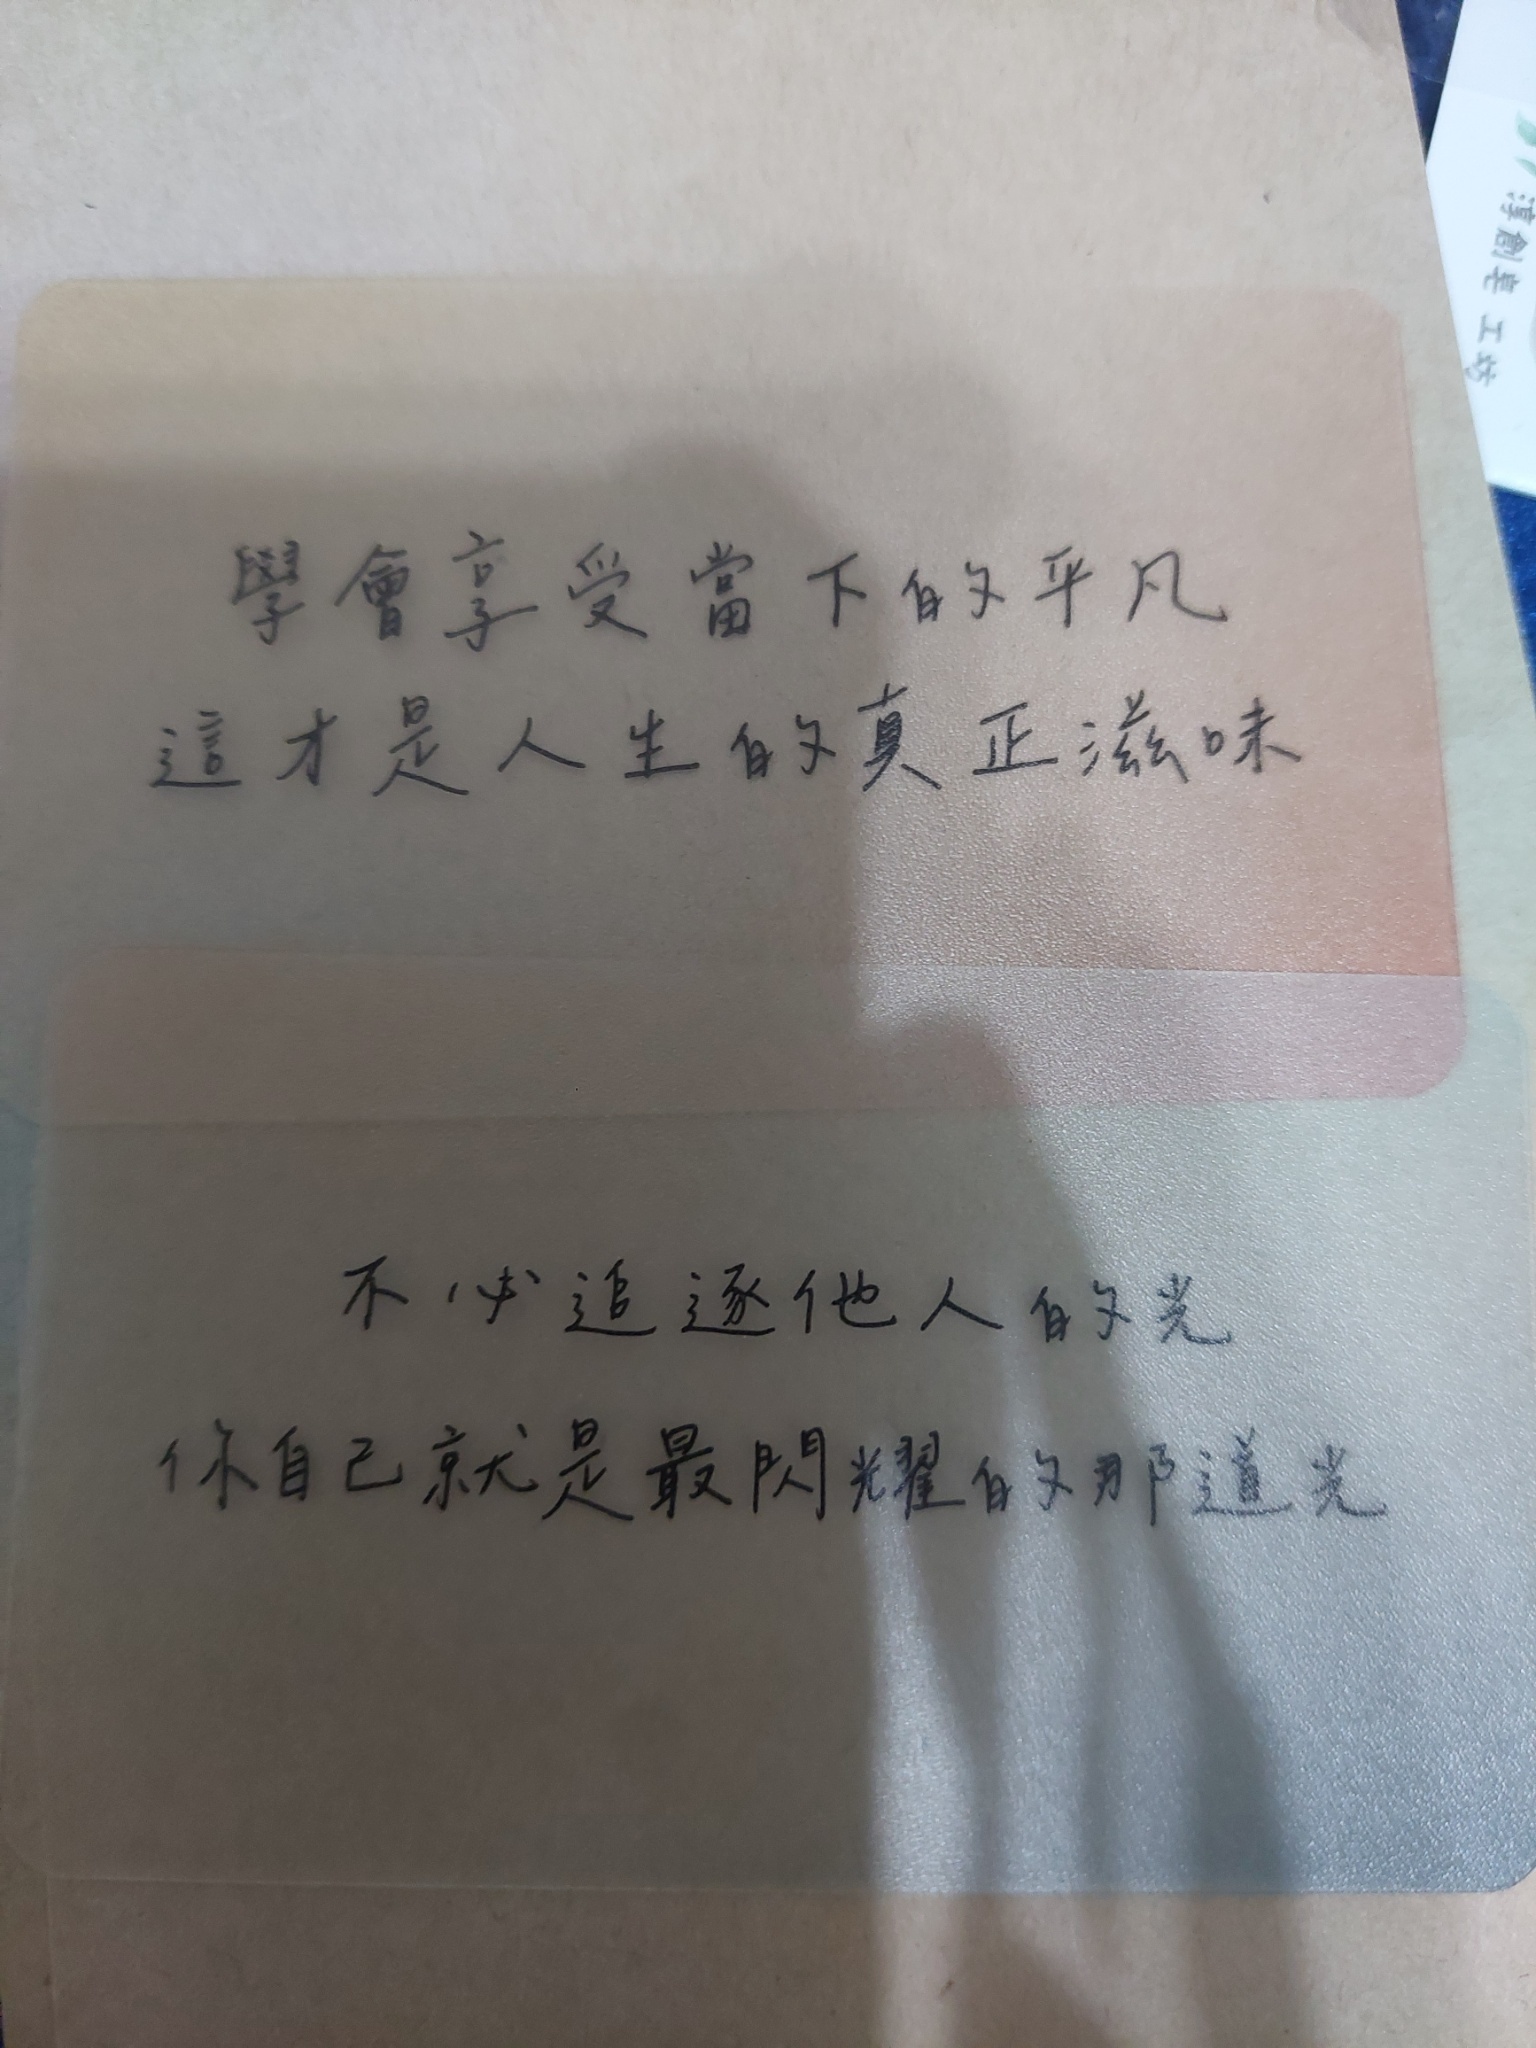 學會享受當下的平凡
這才是人生的真正滋味
不必追逐他人的光
你自己就是最閃耀的那道光
淳創皂工坊